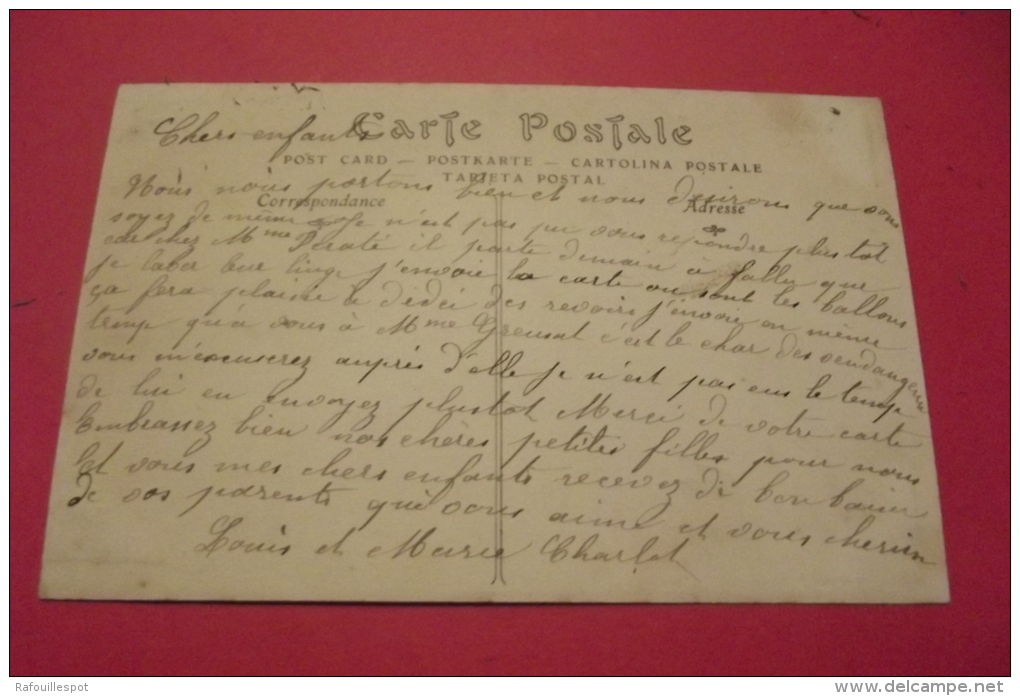 Chers enfants
Carte Postale
POST CARD — POSTKARTE — CARTOLINA POSTALE
TARJETA POSTAL
Correspondance
Adresse
Nous nous portons bien et nous desirons que vous
soyez de même je n'est pas pu vous répondre plustot
car chez Mme il parte demain à fallu que
je laver leur linge j'envoie la carte ou sont les ballons
ça fera plaisir à des revoirs j'envoie en même
temp qu'a vous à Mme c'est le char des vendanges
vous m'excuserez aupris d'elle je n'est pas eus le temp
de lui en envoyez plustot Merci de votre carte
Embrassez bien nos chères petites filles pour nous
Et vous mes chers enfants recevez de bon baiser
de vos parents qui vous aime et vous cheris
Louis et Marie Charlot
Rafouillespot
www.delcampe.net